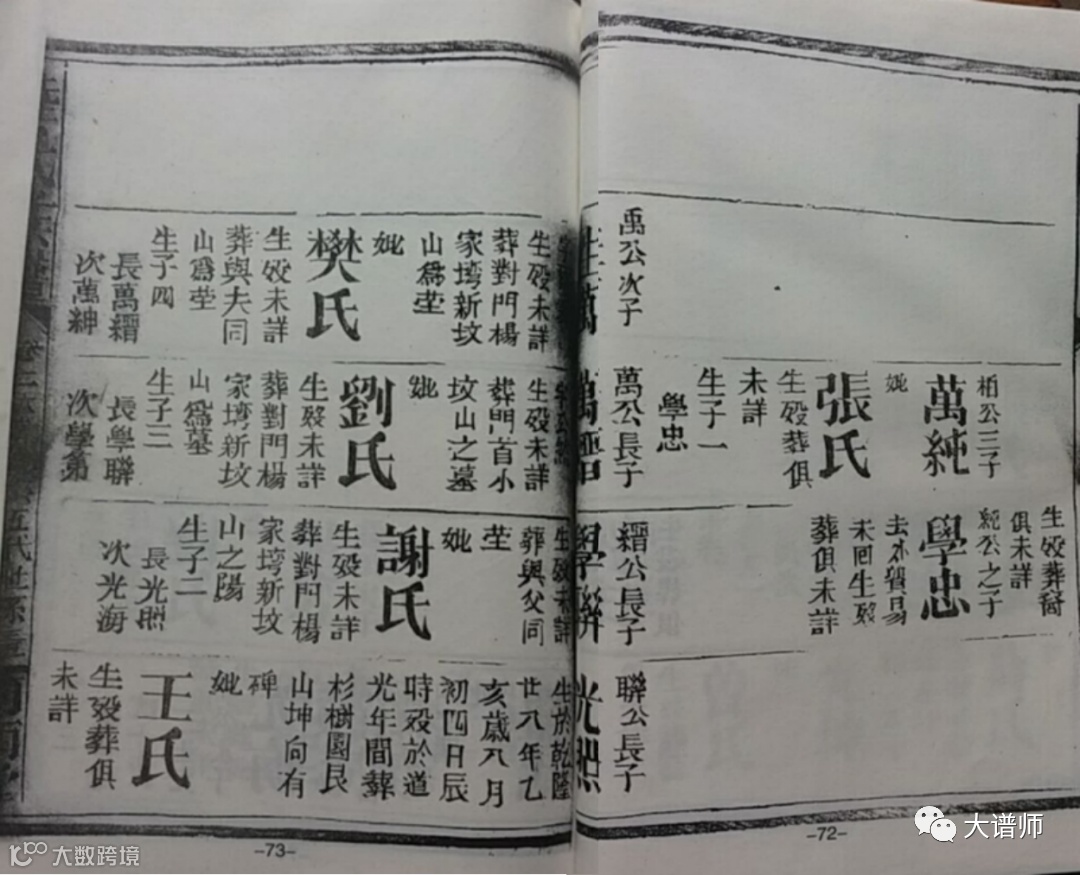 禹公次子
生殁未詳
葬對門楊
家塆新坟
山爲茔
妣
樊氏
生殁未詳
葬與夫同
山爲茔
生子四
長萬縉
次萬紳
柏公三子
萬純
妣
張氏
生殁葬俱
未詳
生子一
學忠
萬公長子
生殁未詳
葬門首小
坟山之墓
妣
劉氏
生殁未詳
葬對門楊
家塆新坟
山爲墓
生子三
長學聯
次學第
生殁葬裔
俱未詳
純公之子
學忠
去外貿易
未回生殁
葬俱未詳
縉公長子
學聯
生殁未詳
葬與父同
茔
妣
謝氏
生殁未詳
葬對門楊
家塆新坟
山之陽
生子二
長光照
次光海
聯公長子
光照
生於乾隆
廿八年乙
亥歲八月
初四日辰
時殁於道
光年間葬
杉樹園艮
山坤向有
碑
妣
王氏
生殁葬俱
未詳
-73-
-72-
大谱师
大数跨境